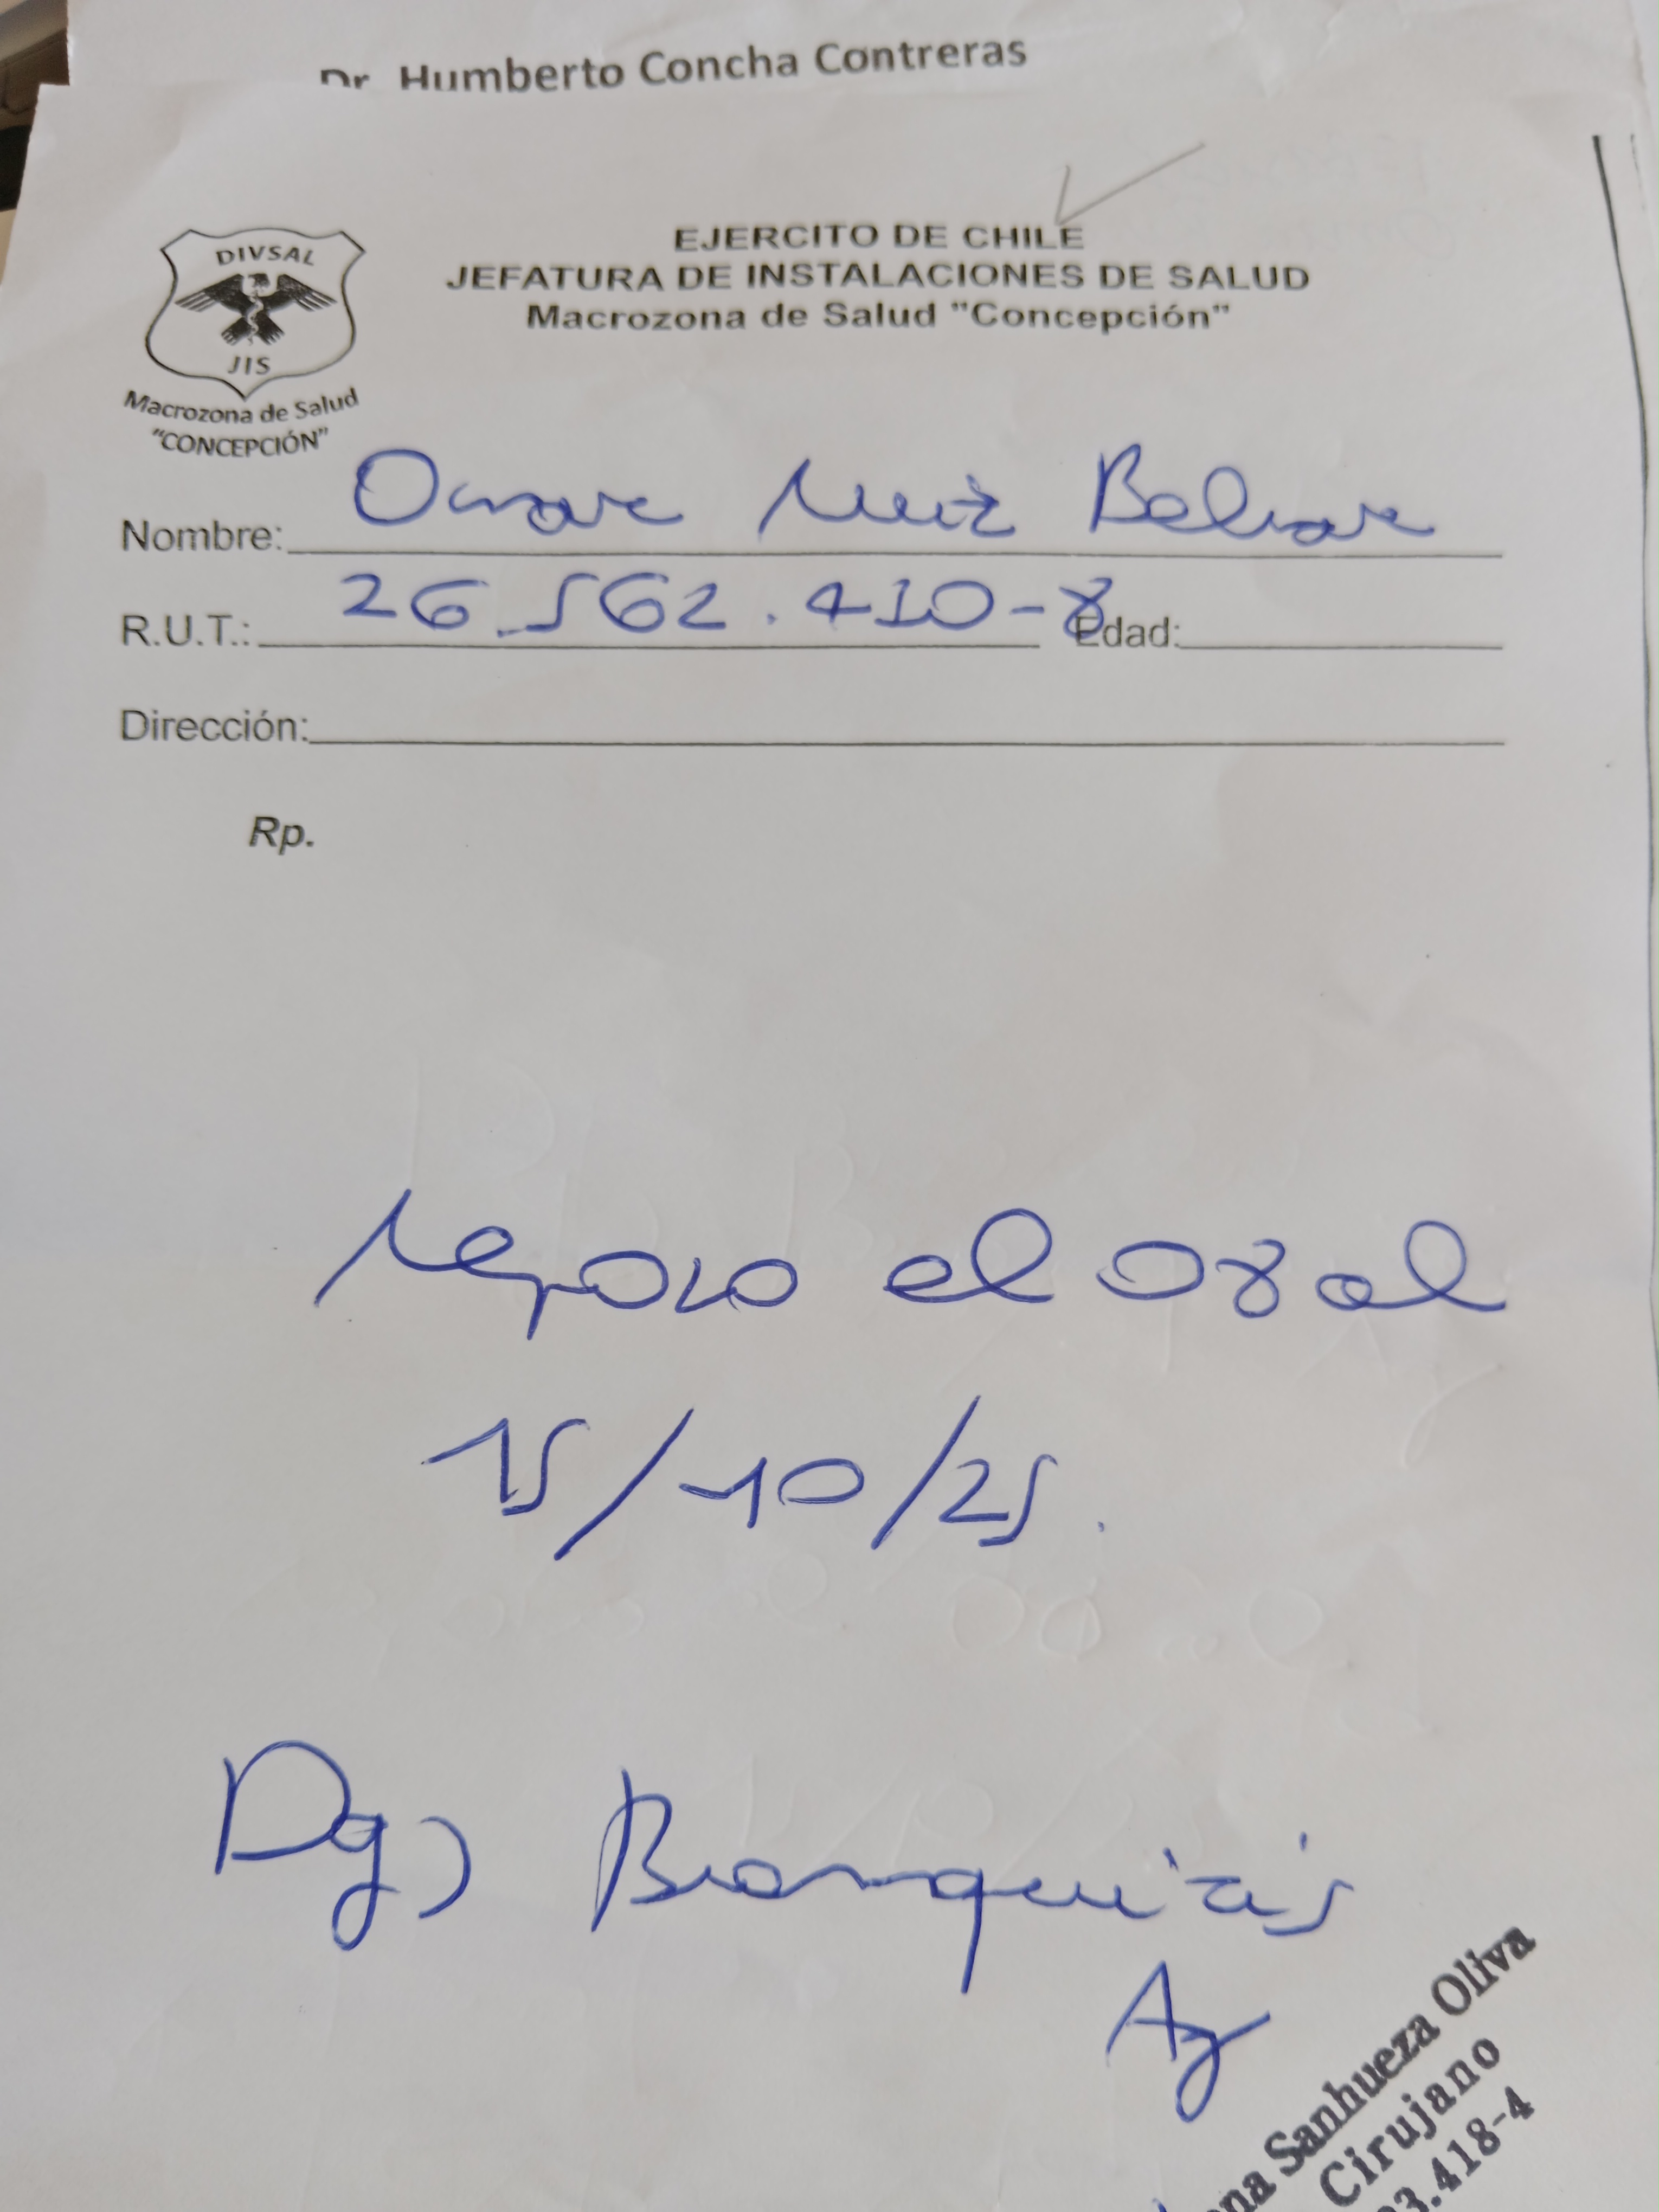 Dr. Humberto Concha Contreras
EJERCITO DE CHILE
JEFATURA DE INSTALACIONES DE SALUD
Macrozona de Salud "Concepción"
DIVSAL
JIS
Macrozona de Salud
"CONCEPCIÓN"
Nombre: Omar Ruiz
R.U.T.: 26.562.410-8 Edad:
Dirección:
Rp.
reposo el 08 al
15/10/25.
Dg) Bronquitis
Ag
Sanhueza Oliva
Cirujano
3.418-4